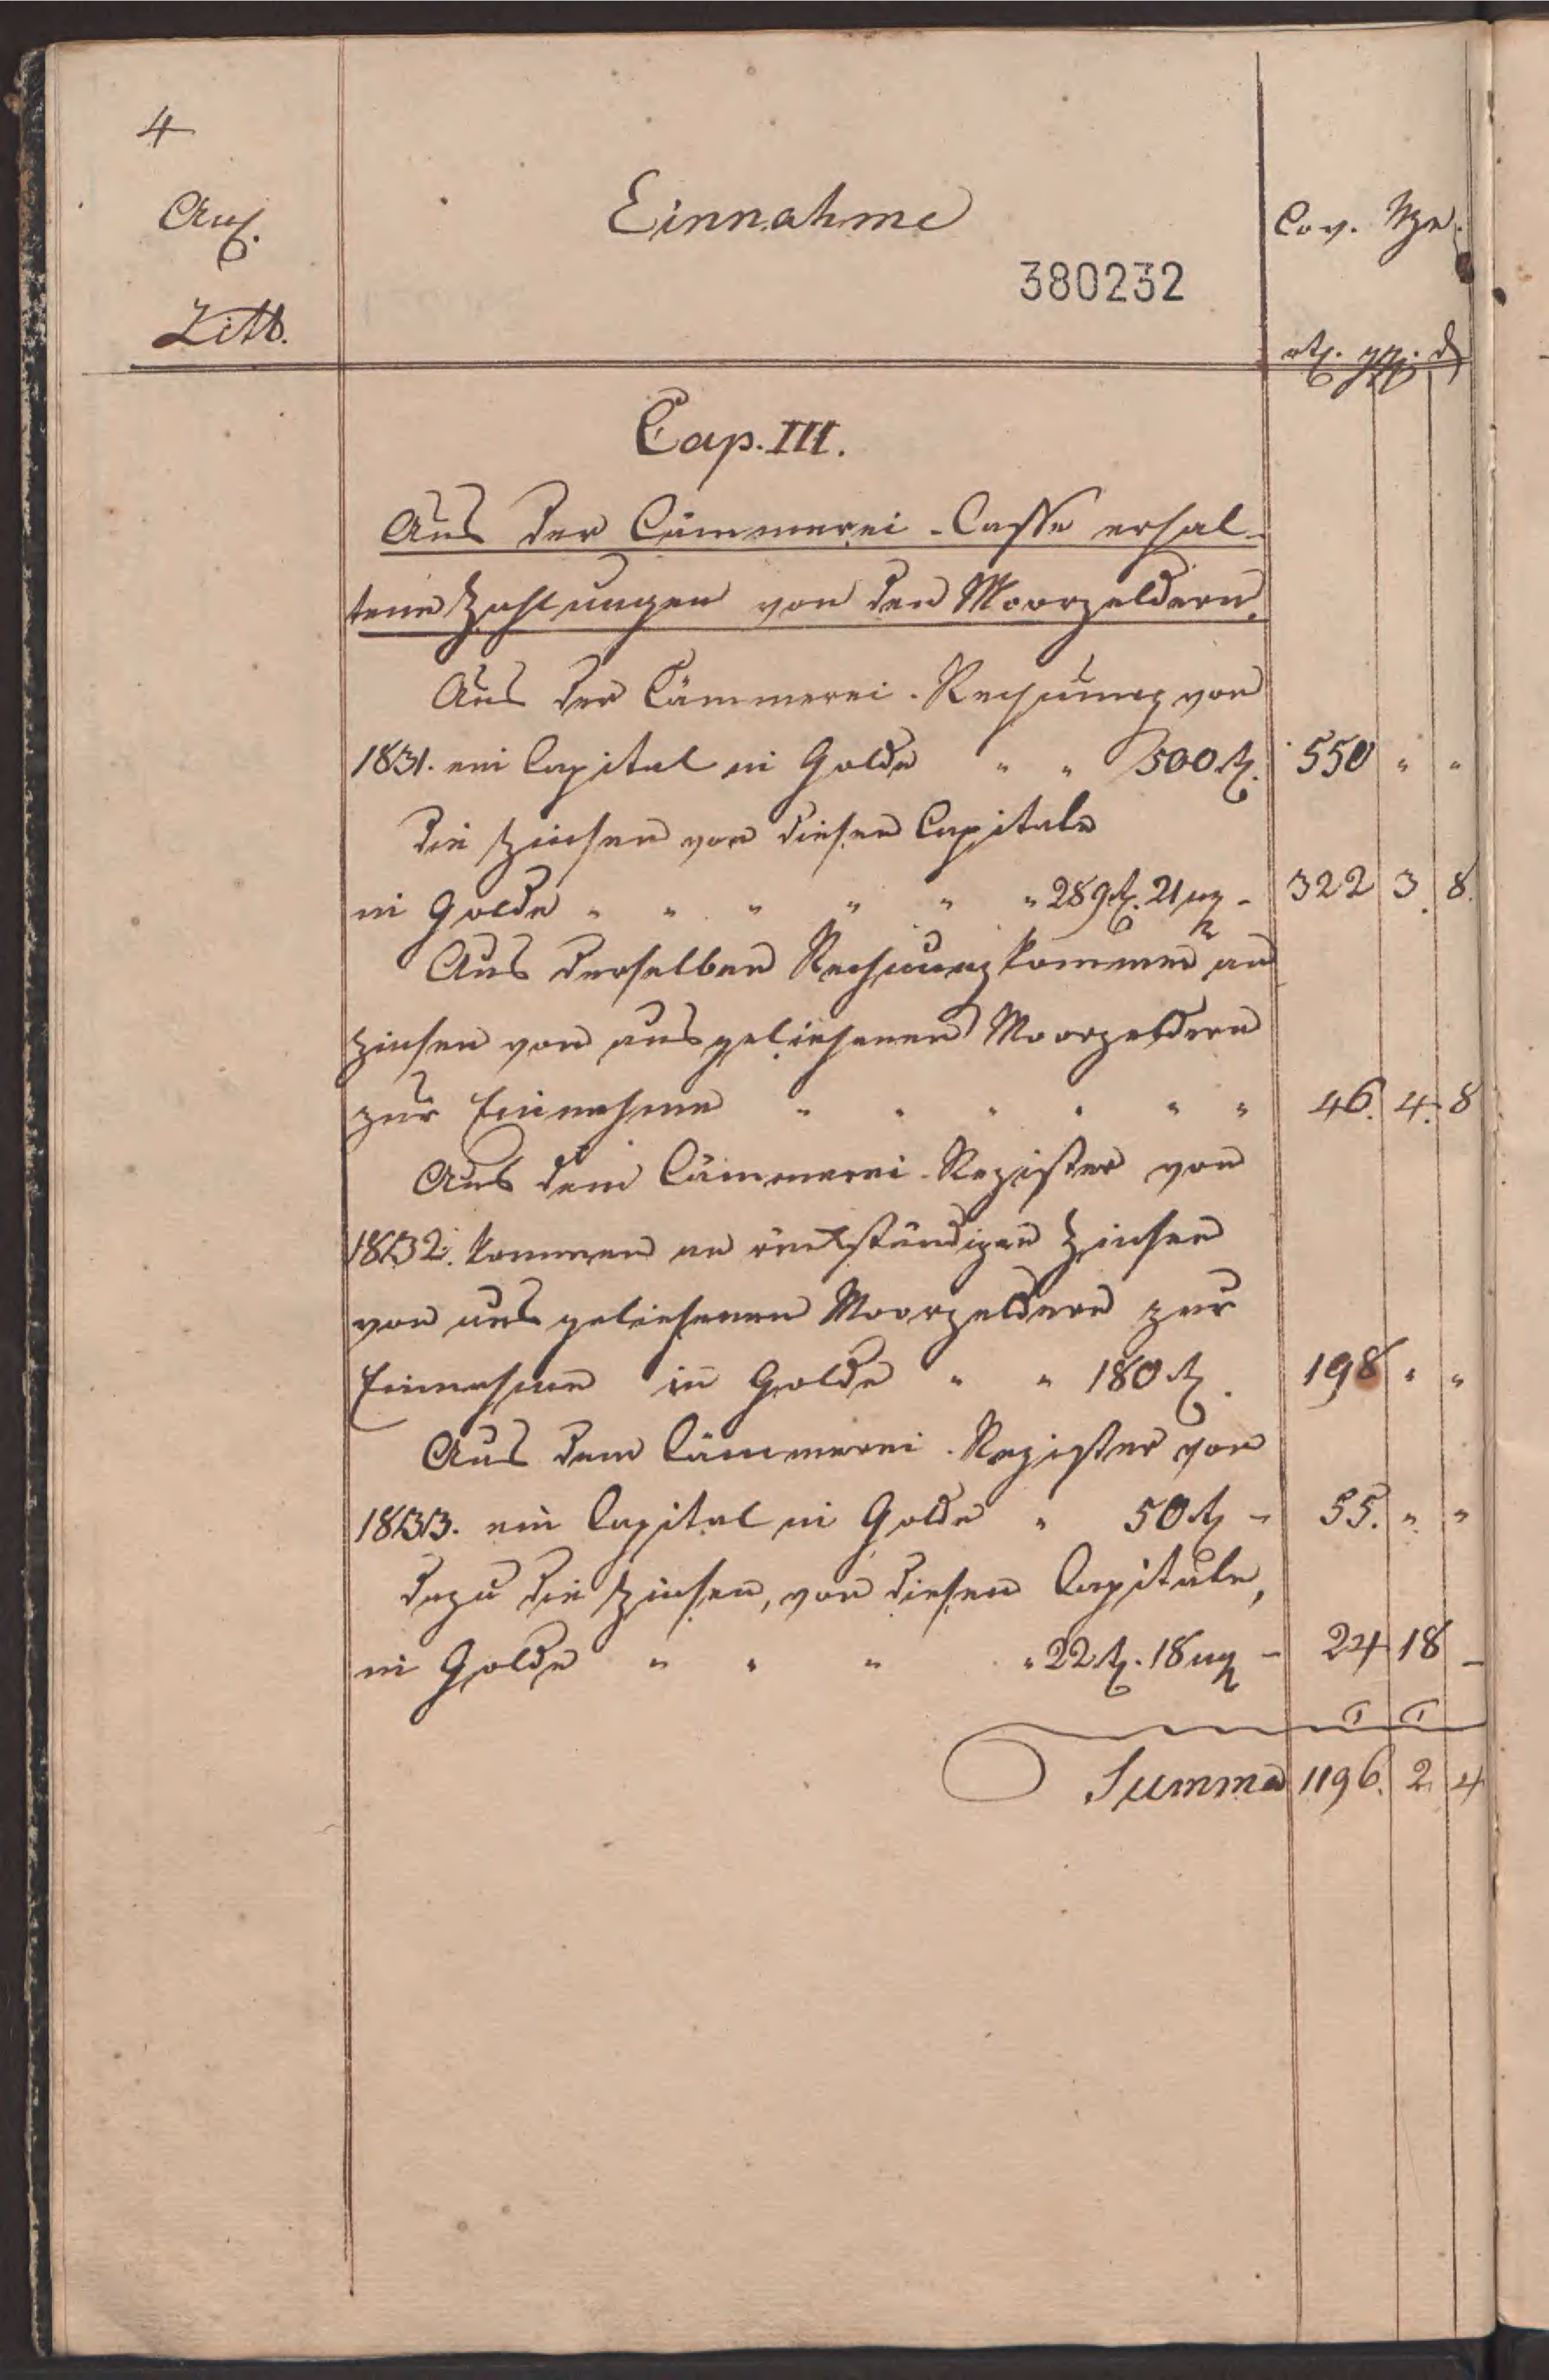 4
Einnahme
Anl.
Cov. Mze.
380232
Litt.
rtl. ggl. d
Cap. III.
Aus der Cämmerei-Casse erhal-
tene Zahlungen von den Moorgeldern.
Aus der Cämmerei-Rechnung von
1831. ein Capital in Golde " " 500 rtl. 550 " "
die Zinsen von diesen Capitale
in Golde " " " " " " 289 rtl. 21 mg - 322 3. 8.
Aus derselben Rechnung kommen an
Zinsen von ausgeliehenen Moorgeldern
zur Einnahme " " " " " " 46. 4. 8
Aus dem Cämmerei-Register von
1832. kommen an rückständigen Zinsen
von ausgeliehenen Moorgeldern zur
Einnahme in Golde " " 180 rtl. 198 " "
Aus dem Cämmerei-Register von
1833. ein Capital in Golde " 50 rtl - 55. " "
dazu die Zinsen, von diesen Capitale,
in Golde " " " " 22 rtl. 18 mg - 24 18 -
Summa 1196. 2. 4